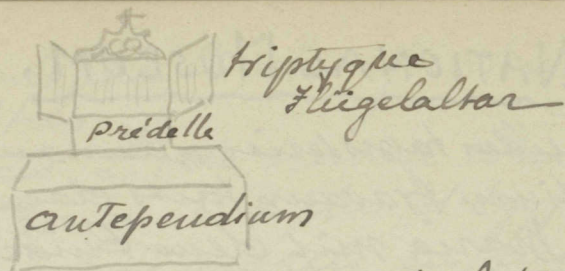 triptyque
Flügelaltar
Prédelle
antependium